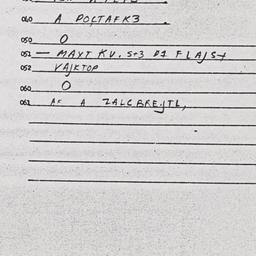 060 A POLTAFK3
050 O
051 — MAXT KU. S+3 D1 FLAJS+
052 VAJKTOP
060 O
061 AF A ZALCBREJTL,